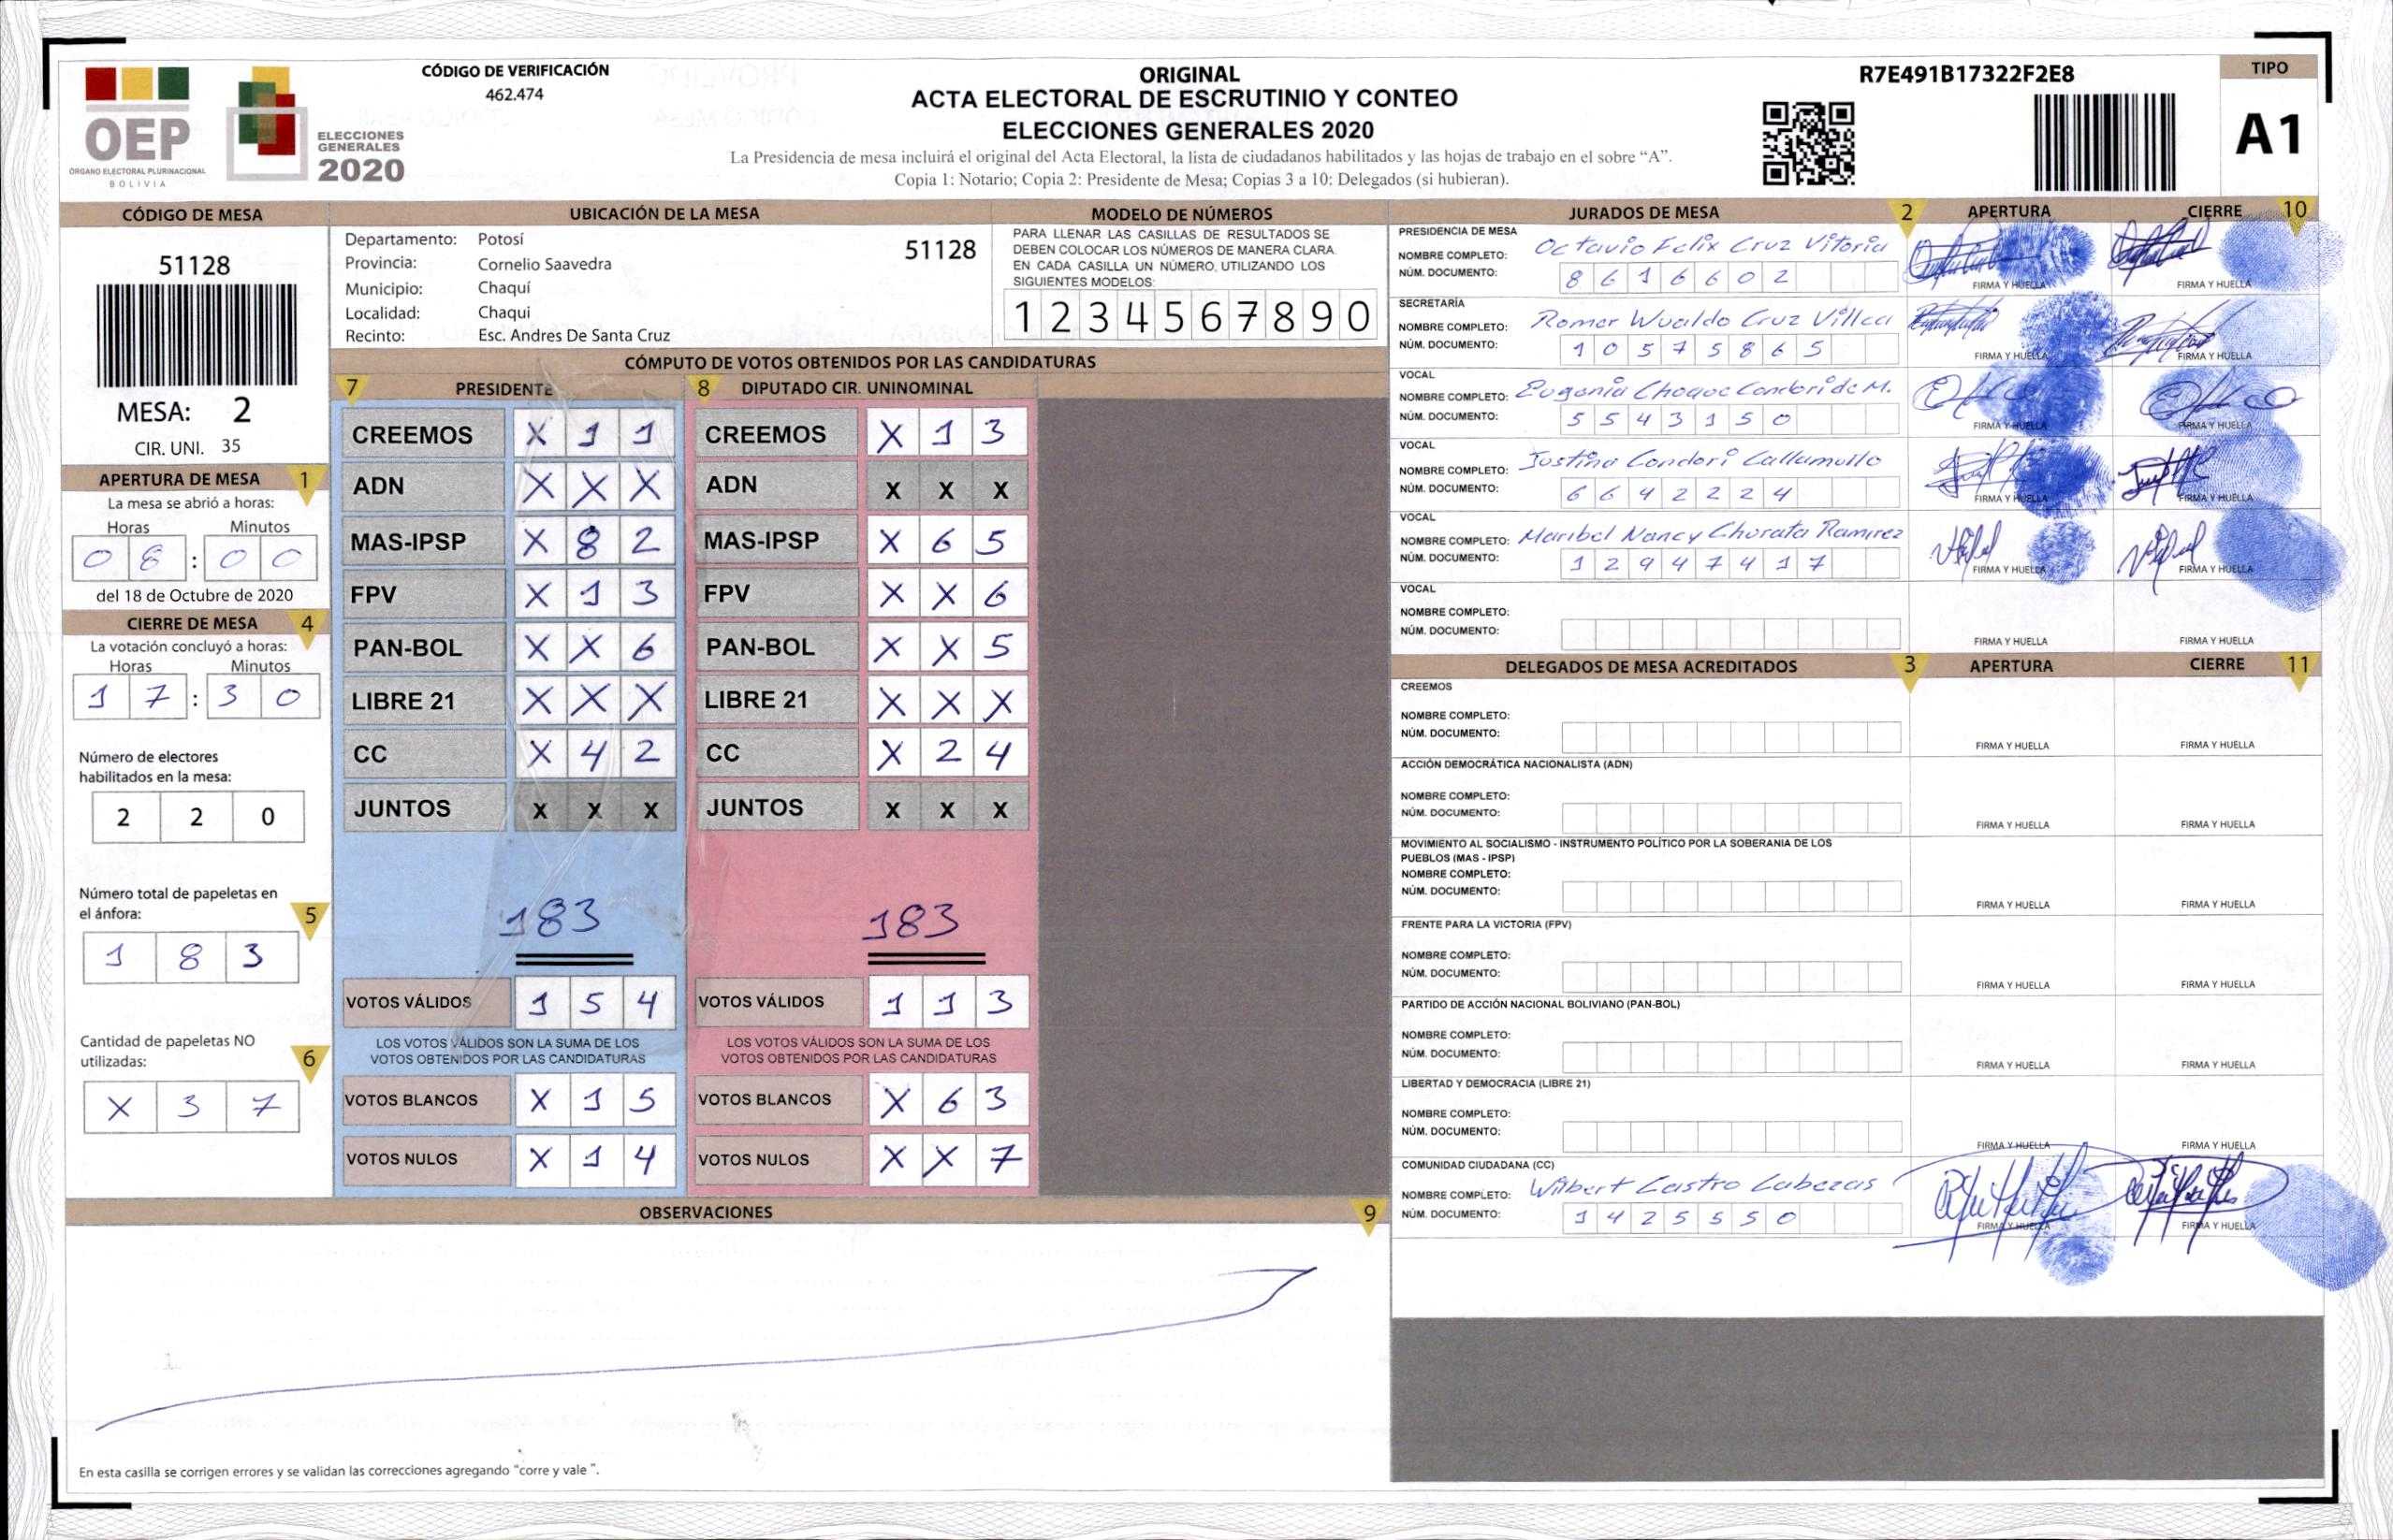 OEP
ÓRGANO ELECTORAL PLURINACIONAL
BOLIVIA
ELECCIONES
GENERALES
2020
CÓDIGO DE VERIFICACIÓN
462.474
ORIGINAL
ACTA ELECTORAL DE ESCRUTINIO Y CONTEO
ELECCIONES GENERALES 2020
La Presidencia de mesa incluirá el original del Acta Electoral, la lista de ciudadanos habilitados y las hojas de trabajo en el sobre “A”.
Copia 1: Notario; Copia 2: Presidente de Mesa; Copias 3 a 10: Delegados (si hubieran).
R7E491B17322F2E8
TIPO
A1
CÓDIGO DE MESA
51128
MESA: 2
CIR. UNI. 35
APERTURA DE MESA 1
La mesa se abrió a horas:
Horas Minutos
0 8 : 0 0
del 18 de Octubre de 2020
CIERRE DE MESA 4
La votación concluyó a horas:
Horas Minutos
1 7 : 3 0
Número de electores
habilitados en la mesa:
2 2 0
Número total de papeletas en
el ánfora: 5
1 8 3
Cantidad de papeletas NO
utilizadas: 6
X 3 7
UBICACIÓN DE LA MESA
Departamento: Potosí
51128
Provincia: Cornelio Saavedra
Municipio: Chaquí
Localidad: Chaqui
Recinto: Esc. Andres De Santa Cruz
MODELO DE NÚMEROS
PARA LLENAR LAS CASILLAS DE RESULTADOS SE
DEBEN COLOCAR LOS NÚMEROS DE MANERA CLARA.
EN CADA CASILLA UN NÚMERO, UTILIZANDO LOS
SIGUIENTES MODELOS:
1 2 3 4 5 6 7 8 9 0
CÓMPUTO DE VOTOS OBTENIDOS POR LAS CANDIDATURAS
7 PRESIDENTE
CREEMOS X 1 1
ADN X X X
MAS-IPSP X 8 2
FPV X 1 3
PAN-BOL X X 6
LIBRE 21 X X X
CC X 4 2
JUNTOS X X X
183
VOTOS VÁLIDOS 1 5 4
LOS VOTOS VÁLIDOS SON LA SUMA DE LOS
VOTOS OBTENIDOS POR LAS CANDIDATURAS
VOTOS BLANCOS X 1 5
VOTOS NULOS X 1 4
8 DIPUTADO CIR. UNINOMINAL
CREEMOS X 1 3
ADN X X X
MAS-IPSP X 6 5
FPV X X 6
PAN-BOL X X 5
LIBRE 21 X X X
CC X 2 4
JUNTOS X X X
183
VOTOS VÁLIDOS 1 1 3
LOS VOTOS VÁLIDOS SON LA SUMA DE LOS
VOTOS OBTENIDOS POR LAS CANDIDATURAS
VOTOS BLANCOS X 6 3
VOTOS NULOS X X 7
OBSERVACIONES 9
En esta casilla se corrigen errores y se validan las correcciones agregando "corre y vale ".
JURADOS DE MESA 2 APERTURA CIERRE 10
PRESIDENCIA DE MESA
NOMBRE COMPLETO: Octavio Felix Cruz Vitoria
NÚM. DOCUMENTO: 8 6 1 6 6 0 2
FIRMA Y HUELLA FIRMA Y HUELLA
SECRETARÍA
NOMBRE COMPLETO: Romer Wualdo Cruz Villca
NÚM. DOCUMENTO: 1 0 5 7 5 8 6 5
FIRMA Y HUELLA FIRMA Y HUELLA
VOCAL
NOMBRE COMPLETO: Eugenia Choque Condori de M.
NÚM. DOCUMENTO: 5 5 4 3 1 5 0
FIRMA Y HUELLA FIRMA Y HUELLA
VOCAL
NOMBRE COMPLETO: Justina Condori Callumullo
NÚM. DOCUMENTO: 6 6 4 2 2 2 4
FIRMA Y HUELLA FIRMA Y HUELLA
VOCAL
NOMBRE COMPLETO: Maribel Nancy Chorata Ramirez
NÚM. DOCUMENTO: 1 2 9 4 7 4 1 7
FIRMA Y HUELLA FIRMA Y HUELLA
VOCAL
NOMBRE COMPLETO:
NÚM. DOCUMENTO:
FIRMA Y HUELLA FIRMA Y HUELLA
DELEGADOS DE MESA ACREDITADOS 3 APERTURA CIERRE 11
CREEMOS
NOMBRE COMPLETO:
NÚM. DOCUMENTO:
FIRMA Y HUELLA FIRMA Y HUELLA
ACCIÓN DEMOCRÁTICA NACIONALISTA (ADN)
NOMBRE COMPLETO:
NÚM. DOCUMENTO:
FIRMA Y HUELLA FIRMA Y HUELLA
MOVIMIENTO AL SOCIALISMO - INSTRUMENTO POLÍTICO POR LA SOBERANIA DE LOS
PUEBLOS (MAS - IPSP)
NOMBRE COMPLETO:
NÚM. DOCUMENTO:
FIRMA Y HUELLA FIRMA Y HUELLA
FRENTE PARA LA VICTORIA (FPV)
NOMBRE COMPLETO:
NÚM. DOCUMENTO:
FIRMA Y HUELLA FIRMA Y HUELLA
PARTIDO DE ACCIÓN NACIONAL BOLIVIANO (PAN-BOL)
NOMBRE COMPLETO:
NÚM. DOCUMENTO:
FIRMA Y HUELLA FIRMA Y HUELLA
LIBERTAD Y DEMOCRACIA (LIBRE 21)
NOMBRE COMPLETO:
NÚM. DOCUMENTO:
FIRMA Y HUELLA FIRMA Y HUELLA
COMUNIDAD CIUDADANA (CC)
NOMBRE COMPLETO: Wilbert Castro Cabezas
NÚM. DOCUMENTO: 1 4 2 5 5 5 0
FIRMA Y HUELLA FIRMA Y HUELLA